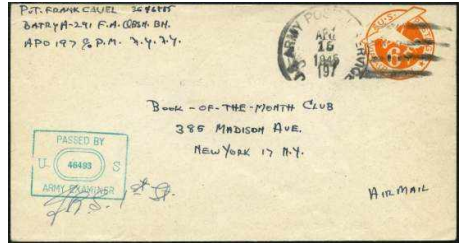 PVT. FRANK CAVEL
BATRY A-291 F.A. OBSN. BN.
APO 197 % P.M. N.Y. N.Y.
ARMY POSTAL
APR
16
1945
197
U.S.
6
BOOK-OF-THE-MONTH CLUB
385 MADISON AVE.
NEW YORK 17 N.Y.
PASSED BY
U 46493 S
ARMY EXAMINER
1st Lt.
AIR MAIL